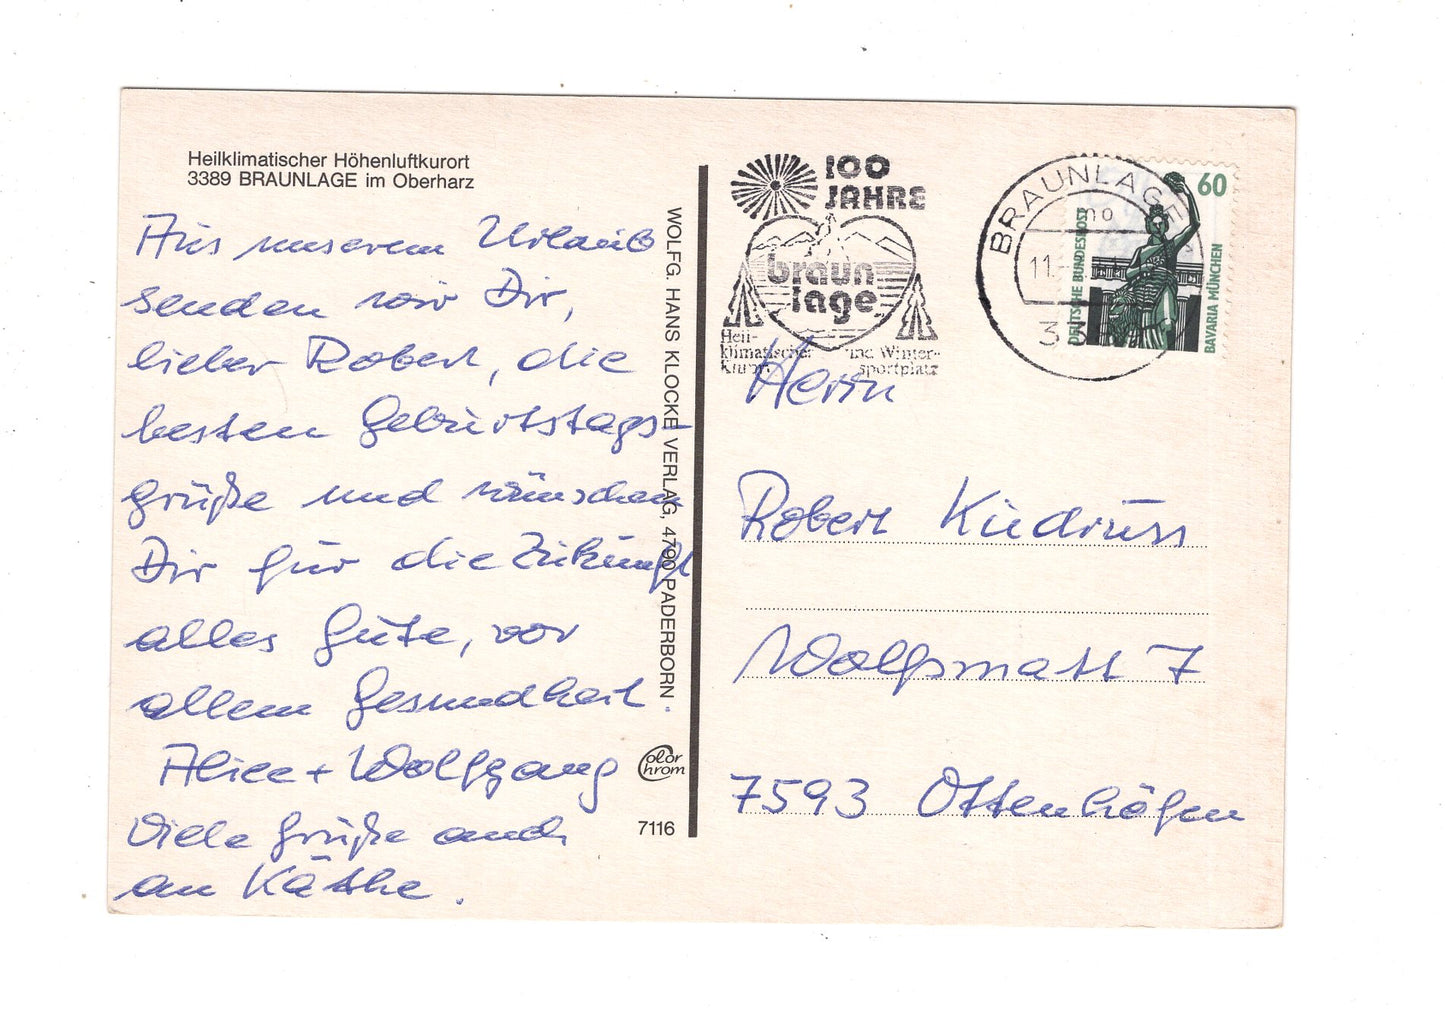 Heilklimatischer Höhenluftkurort
3389 BRAUNLAGE im Oberharz
Aus unserem Urlaub
senden wir Dir,
lieber Robert, die
besten Geburtstags-
grüße und wünschen
Dir für die Zukunft
alles Gute, vor
allem Gesundheit.
Alice + Wolfgang
Viele Grüße auch
an Käthe.
WOLFG. HANS KLOCKE VERLAG, 4790 PADERBORN
Color
Chrom
7116
100
JAHRE
braun
lage
Heil-
klimatischer
Kurort
und Winter-
sportplatz
BRAUNLAGE
mo
11.-
60
DEUTSCHE BUNDESPOST
BAVARIA MÜNCHEN
Herrn
Robert
Wolfsmatt 7
7593 Ottenhöfen